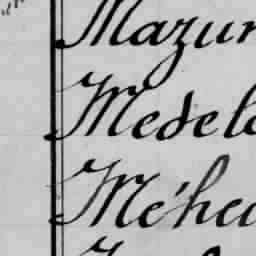 Mazur
Medel
Méhe